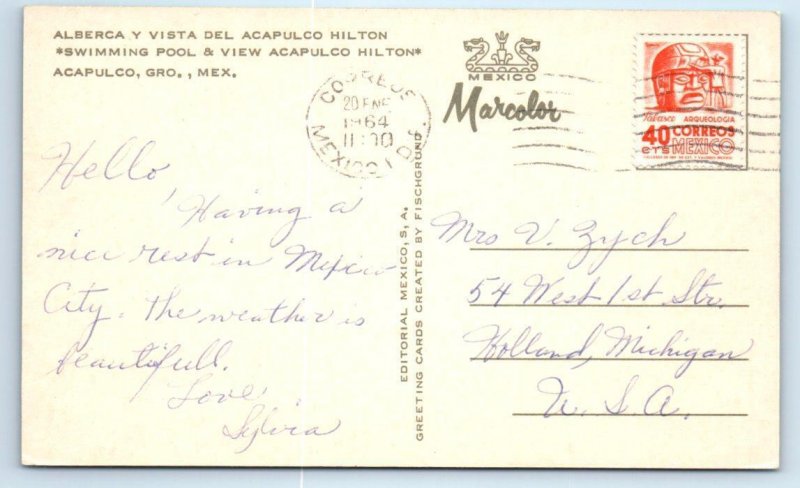 ALBERCA Y VISTA DEL ACAPULCO HILTON
*SWIMMING POOL & VIEW ACAPULCO HILTON*
ACAPULCO, GRO., MEX.
MEXICO
Marcolor
CORREOS
20 ENE
1964
11:00
MEXICO 1 D.F.
Tabasco ARQUEOLOGIA
40 CORREOS
cTs MEXICO
Hello,
Having a
nice rest in Mexico
City. The weather is
beautifull.
Love,
Sylvia
EDITORIAL MEXICO, S. A.
GREETING CARDS CREATED BY FISCHGRUND
Mrs V. Zych
54 West 1st Str.
Holland, Michigan
U. S. A.